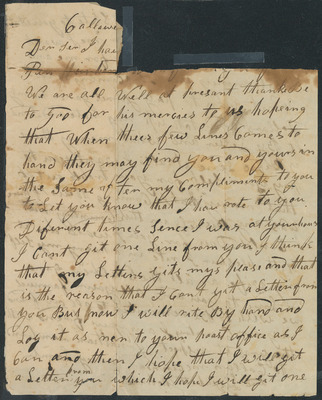 Callowa
Dear Sir I hav
We are all Well at present thanks be
to God for his mercies to us hopeing
that When thees few Lines Comes to
hand they may find you and yours in
the Same after my Compliments to you
to Let you know that I hav rote to you
Diferent times Sence I was at your house
I Cant git one Line from you I think
that my Letters gits mys plased and that
is the reason that I Cant git a Letter from
you But now I will rite By hand and
Log it as near to your poast office as I
Can and then I hope that I will git
a Letter from you which I hope I will git one